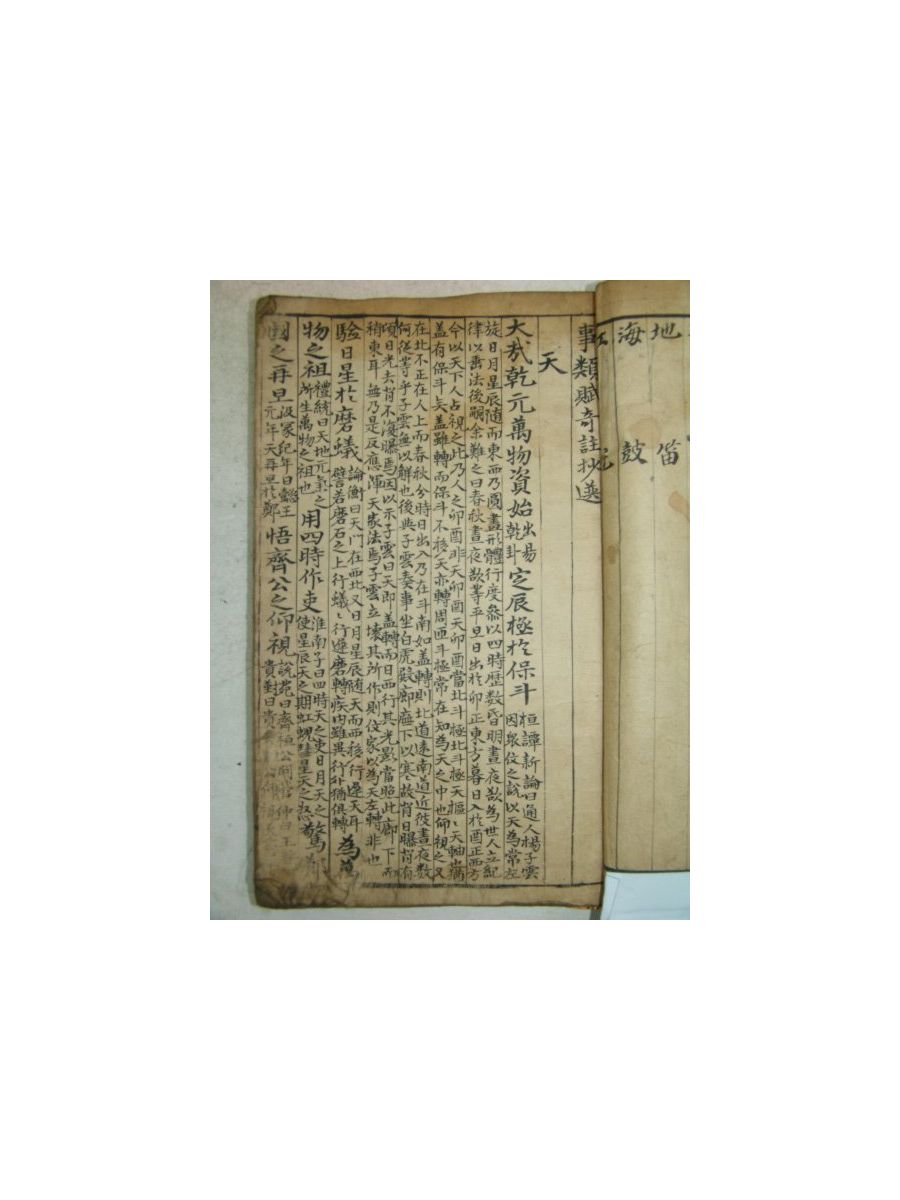 地 笛
海 鼓
事類賦奇註抄選
天
大哉乾元萬物資始 出易
乾卦 定辰極於保斗 桓譚新論曰通人楊子雲
因衆仪之說以天為常左
旋日月星辰隨而東西乃圖畫形體行度叅以四時歷数昏明晝夜欲為世人立紀
律以垂法後嗣余難之曰春秋晝夜欲等平旦日出於卯正東方暮日入於酉正西方
今以天下人占視之此乃人之卯酉非天卯酉天卯酉當北斗極北斗極天樞〻天軸也猶
盖有保斗矣盖雖轉而保斗不移天亦轉周匝斗極常在知為天之中也仰視之又
在北不正在人上而春秋分時日出入乃在斗南如盖轉則北道遠南道近彼晝夜数
何從等乎子雲無以解也後與子雲奏事坐白虎殿廊廡下以寒〻故背日曝背有
頃日光去背不復曝焉因以示子雲曰天即盖轉而日西行其光影當照此廊下而
稍東耳無乃是反應渾天家法焉子雲立壞其所作則仪家以為天左轉非也
驗日星於磨蟻 論衡曰天門在西北又日月星辰随天而西移行遲天耳
譬若磨石之上行蟻〻行遲磨轉疾内雖異行外猶俱轉 為萬
物之祖 禮統曰天地元氣之
所生萬物之祖也 用四時作吏 淮南子曰四時天之吏日月天之
使星辰天之期虹蜺彗星天之忌 驚
國之再旦 汲冢紀年曰懿王
元年天再旦於鄭 悟齊公之仰視 說苑曰齊桓公問管仲曰王
貴對曰貴